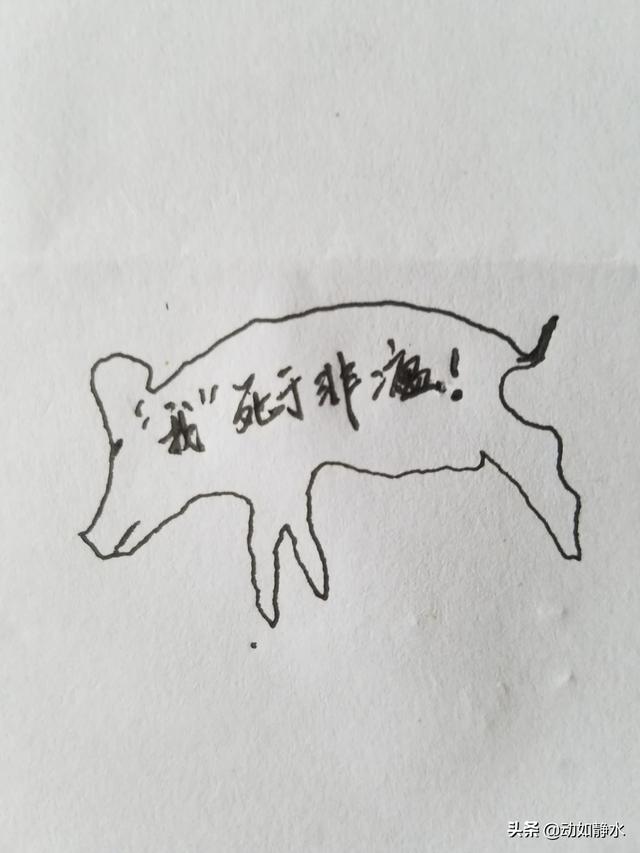 “我”死于非瘟！
头条 @动如静水